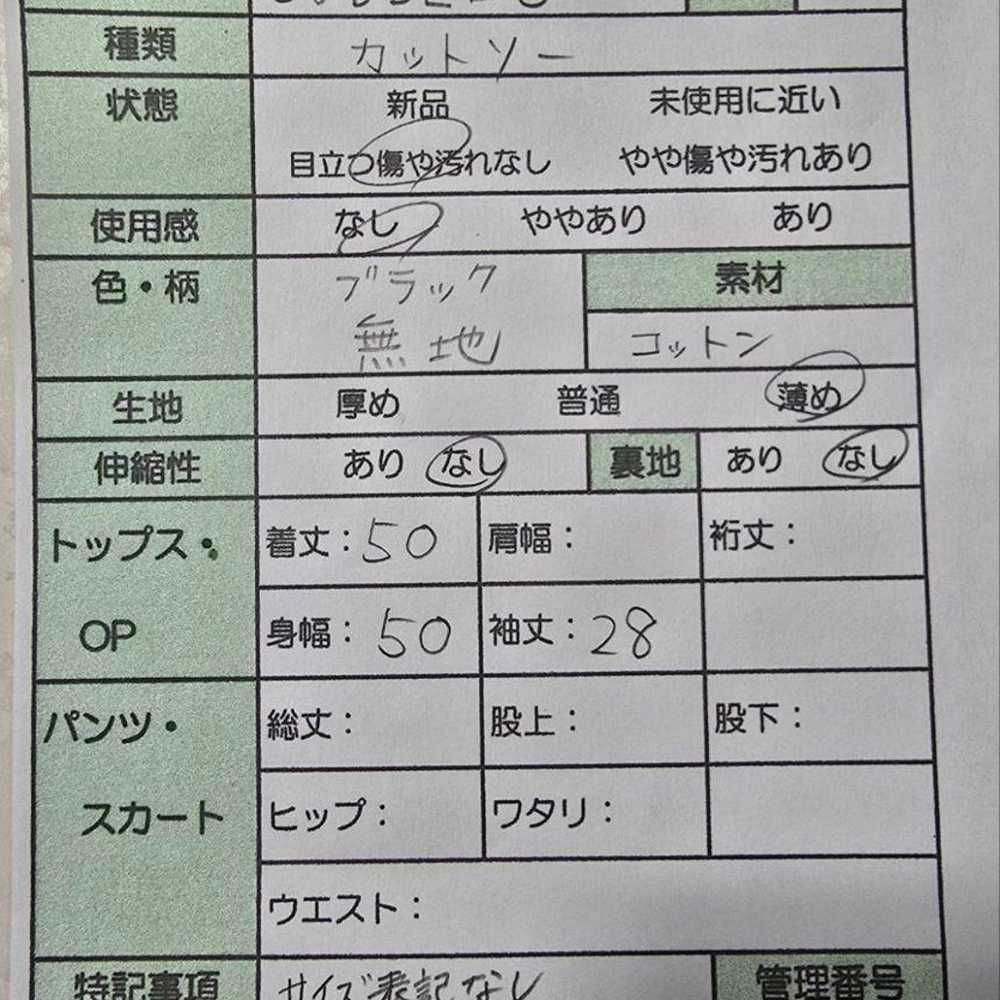 種類 カットソー
状態 新品 未使用に近い
目立つ傷や汚れなし やや傷や汚れあり
使用感 なし ややあり あり
色・柄 ブラック 素材
無地 コットン
生地 厚め 普通 薄め
伸縮性 あり なし 裏地 あり なし
トップス・ 着丈：50 肩幅： 裄丈：
OP 身幅：50 袖丈：28
パンツ・ 総丈： 股上： 股下：
スカート ヒップ： ワタリ：
ウエスト：
特記事項 サイズ表記なし 管理番号